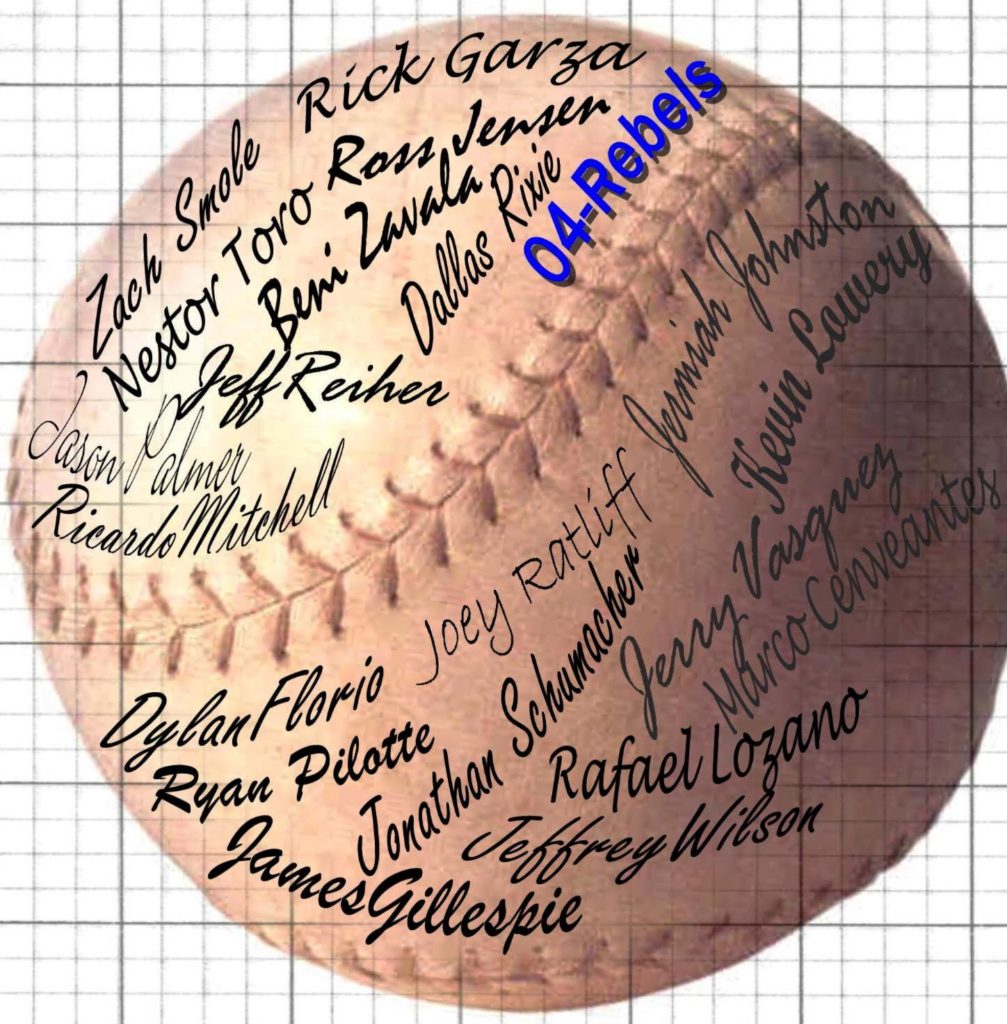 Rick Garza
Zach Smole
Ross Jensen
Nestor Toro
Beni Zavala
Dallas Rixie
04-Rebels
Jeff Reiher
Jason Palmer
Ricardo Mitchell
Jermiah Johnston
Kevin Lowery
Joey Ratliff
Jerry Vasquez
Marco Cenveantes
Dylan Florio
Ryan Pilotte
Jonathan Schumacher
Rafael Lozano
Jeffrey Wilson
James Gillespie